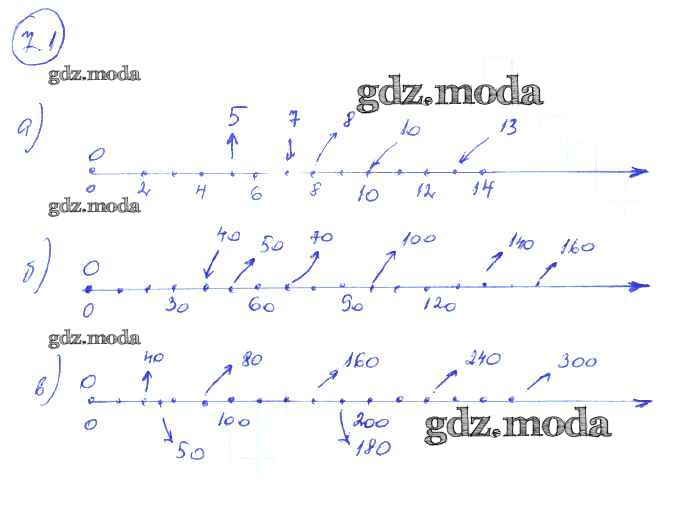 7.1
gdz.moda
gdz.moda
а)
5 7 8 10 13
0
0 2 4 6 8 10 12 14
gdz.moda
б)
40 50 70 100 140 160
0
0 30 60 90 120
gdz.moda
в)
40 80 160 240 300
0
0 100 200
50 180
gdz.moda